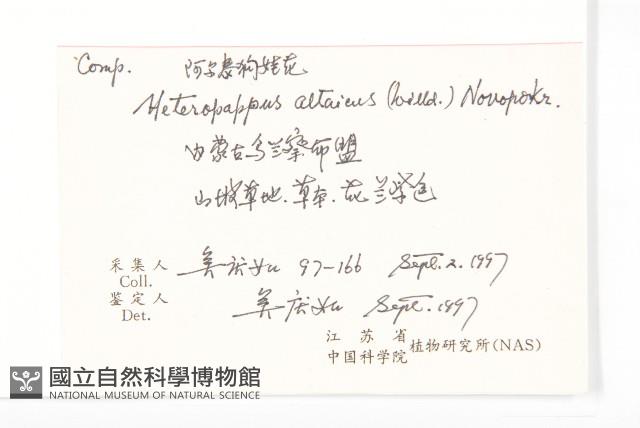 Comp. 阿尔泰狗娃花
Heteropappus altaicus (Willd.) Novopokr.
内蒙古乌兰察布盟
山坡草地.草本.花兰紫色
采集人 吴庆如 97-166 Sept. 2. 1997
Coll.
鉴定人 吴庆如 Sept. 1997
Det.
江苏省
中国科学院 植物研究所(NAS)
國立自然科學博物館
NATIONAL MUSEUM OF NATURAL SCIENCE